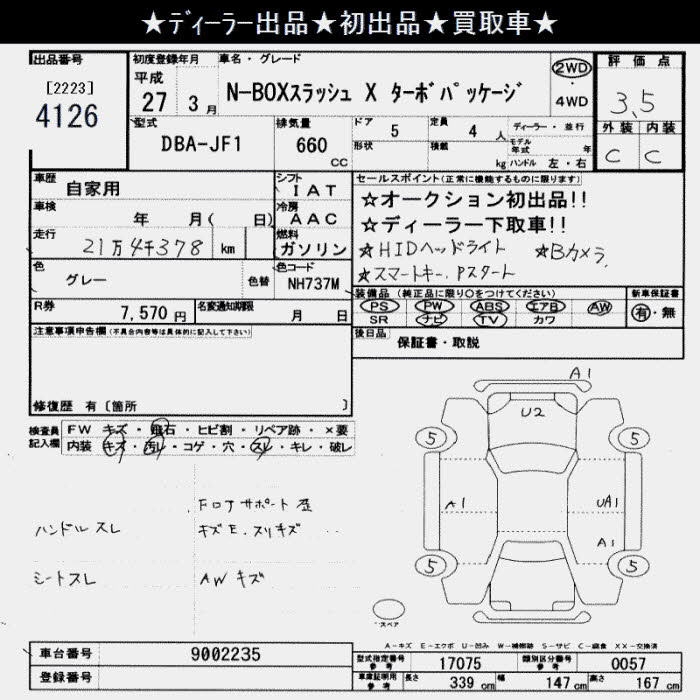 ★ディーラー出品★初出品★買取車★
出品番号 初度登録年月 車名・グレード 評価点
[2223] 平成 27 3月 N-BOXスラッシュ X ターボパッケージ 2WD・4WD 3.5
4126
型式 排気量 ドア 5 定員 4人 ディーラー・並行 外装 内装
DBA-JF1 660 CC 形状 積載 kg モデル年式 年 ハンドル 左・右 C C
車歴 自家用 シフト IAT セールスポイント(正常に機能するものに限ります)
車検 年 月( 日) 冷房 AAC ☆オークション初出品!!
☆ディーラー下取車!!
走行 21万4千378 km 燃料 ガソリン ☆HIDヘッドライト ☆Bカメラ
☆スマートキー、Pスタート
色 グレー 色替 色コード NH737M
装備品(純正品に限り○をつけてください) 新車保証書
PS PW ABS エアB AW 有・無
SR ナビ TV カワ
R券 7,570円 名変通知期限 月 日
後日品 保証書・取説
注意事項申告欄(不具合内容等は具体的に記入して下さい)
修復歴 有 [箇所 ]
検査員記入欄 FW キズ・飛石・ヒビ割・リペア跡・×要
内装 キズ・汚レ・コゲ・穴・スレ・キレ・破レ
A1
U2
5 5
A1 UA1
A1
5 5
スペア
FロアサポートE歪
ハンドルスレ キズE.スリキズ
シートスレ AWキズ
A-キズ E-エクボ U-凹み W-補修跡 S-サビ C-腐食 XX-交換済
車台番号 9002235
登録番号
型式指定番号 参考 17075 類別区分番号 参考 0057
車庫証明用 参考 長さ 339cm 幅 147cm 高さ 167cm